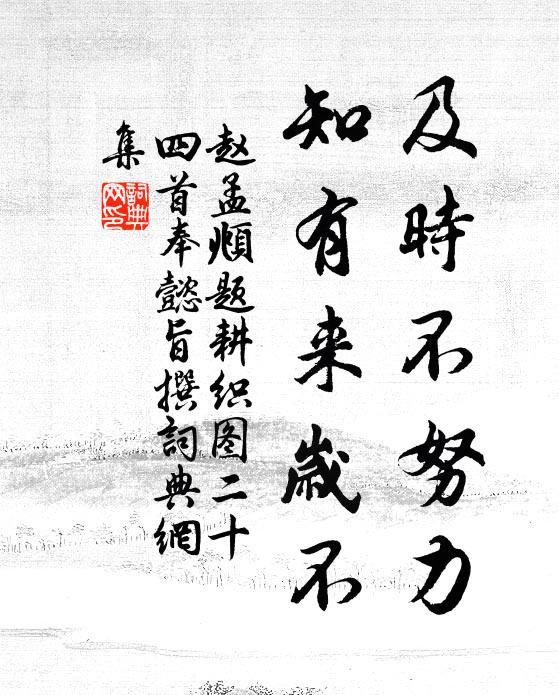 及時不努力
知有来歲不
赵孟頫题耕织图二十
四首奉懿旨撰詞典網
集
詞典網印